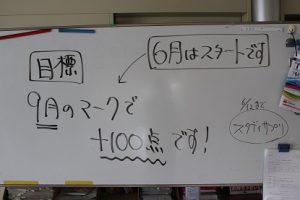 6月はスタートです
目標
9月のマークで
+100点です!
6/12まで
スタディサプリ